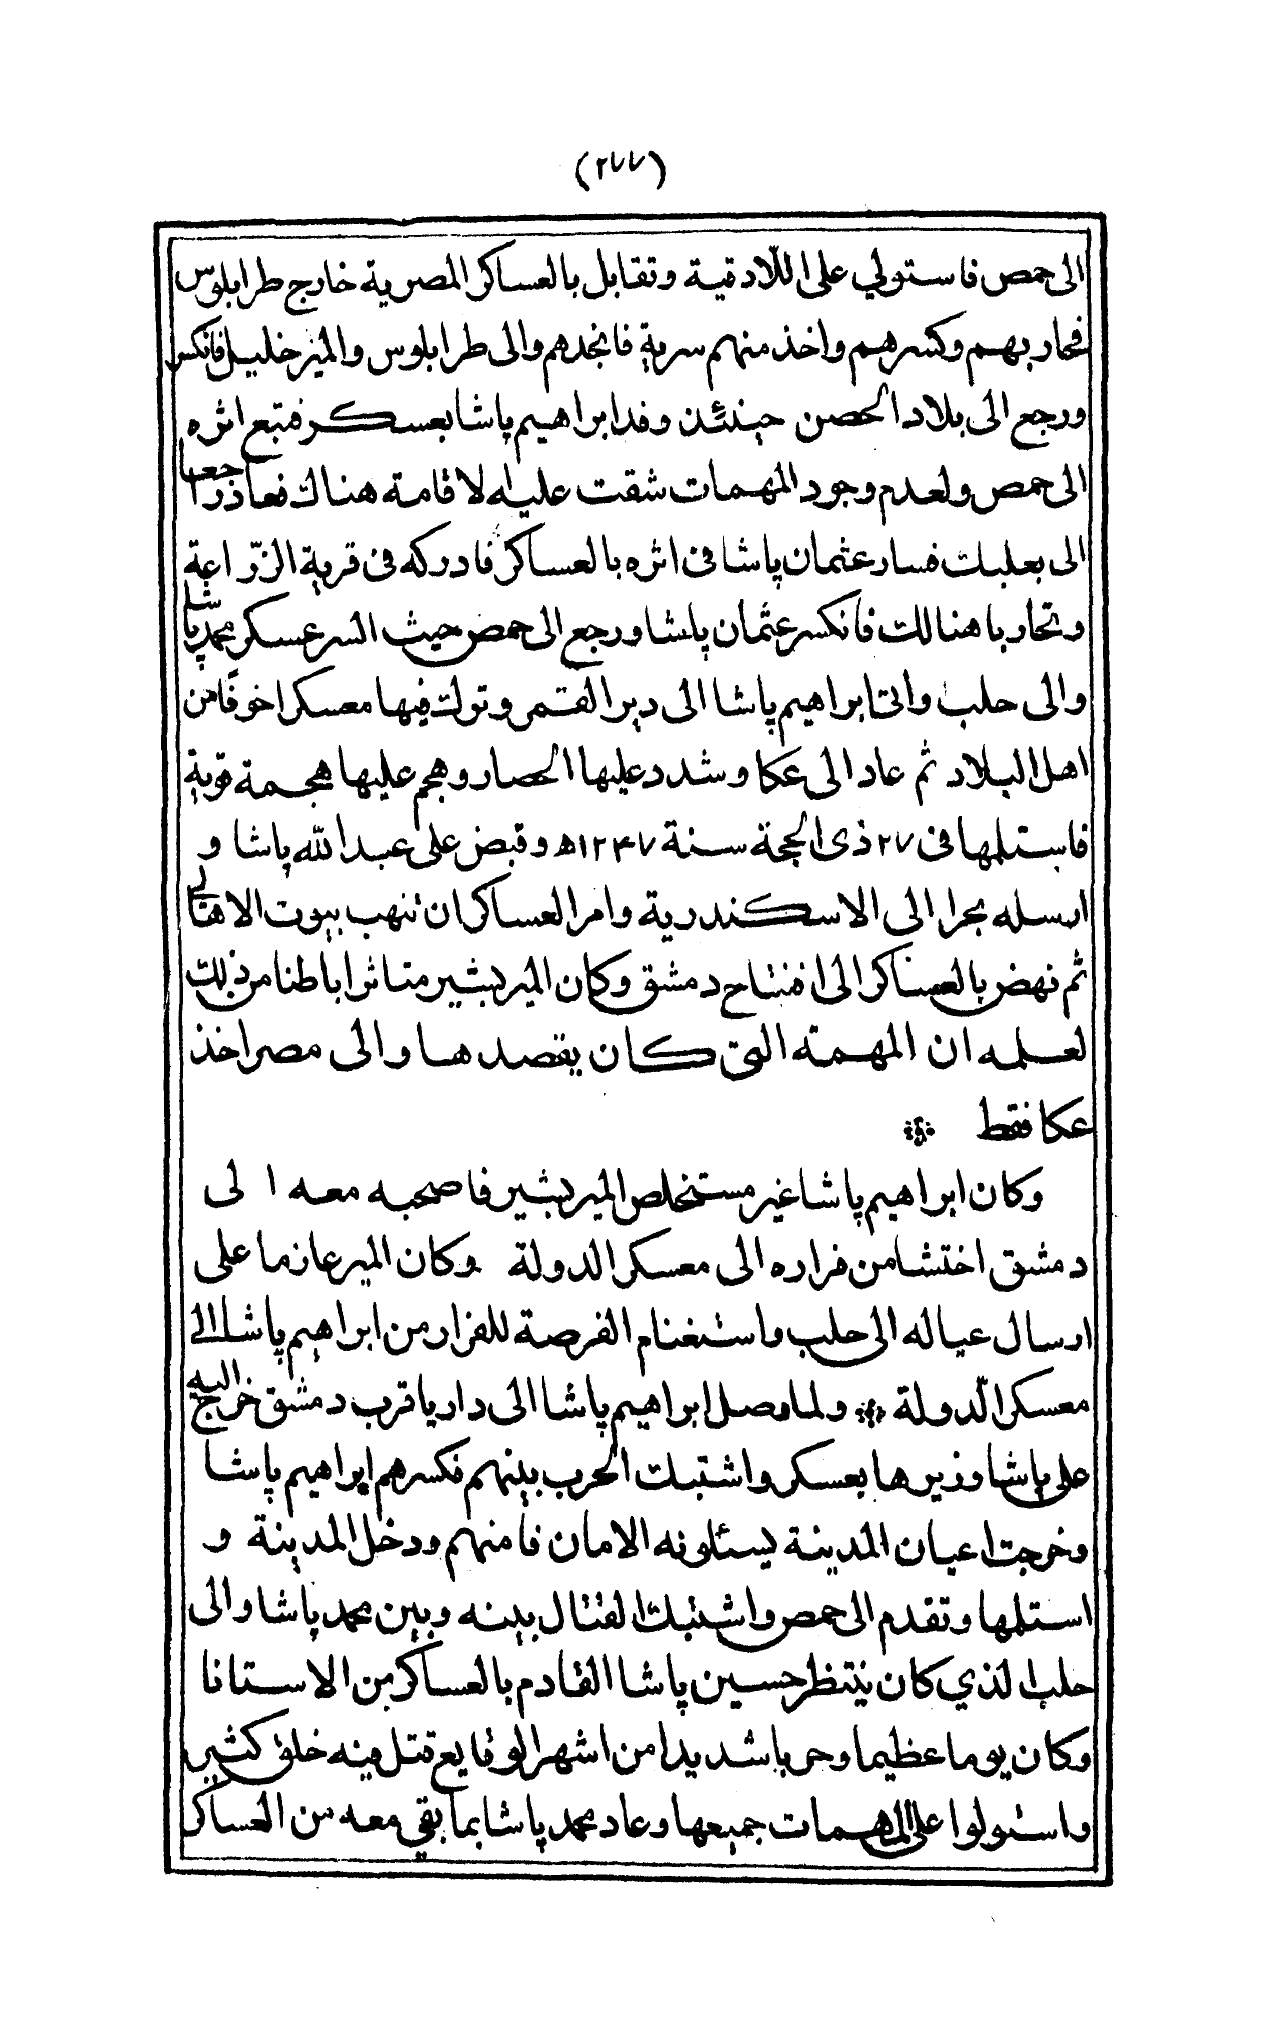 (٢٧٧)
الى حمص فاستولي على اللّادقية وتقابل بالعساكر المصرية خارج طرابلوس
فحاربهم وكسرهم واخذ منهم سرية فانجدهم والى طرابلوس والمير خليل فانكسر
ورجع الى بلاد الحصن حينئذ وفد ابراهيم پاشا بعسكر فتبع اثره
الى حمص ولعدم وجود المهمات شقت عليه الاقامة هناك فعاد راجعا
الى بعلبك فسار عثمان پاشا فى اثره بالعساكر فادركه فى قرية الزّراعة
وتحاربا هنالك فانكسر عثمان پاشا ورجع الى حمص حيث السر عسكر محمد پاشا
والى حلب واتى ابراهيم پاشا الى دير القمر وترك فيها معسكرا خوفًا من
اهل البلاد ثم عاد الى عكا وشدد عليها الحصار وهجم عليها هجمة قوية
فاستلمها فى ٢٧ ذى الحجة سنة ١٢٤٧ه وقبض على عبد الله پاشا و
ارسله بحرا الى الاسكندرية وامر العساكر ان تنهب بيوت الاهالى
ثم نهض بالعساكر الى افتتاح دمشق وكان المير بشير متاثرا باطنا من ذلك
لعلمه ان المهمة التى كان يقصدها والى مصر اخذ
عكا فقط
وكان ابراهيم پاشا غير مستخلص المير بشير فاصحبه معه الى
دمشق اختشا من فراره الى معسكر الدولة وكان المير عازما على
ارسال عياله الى حلب واستغنام الفرصة للفرار من ابراهيم پاشا الى
معسكر الّدولة ولما وصل ابراهيم پاشا الى داريا قرب دمشق خرج اليه
على پاشا وزيرها بعسكر واشتبك الحرب بينهم فكسرهم ابراهيم پاشا
وخرجت اعيان المدينة يسئلونه الامان فامنهم ودخل المدينة و
استلمها وتقدم الى حمص واشتبك القتال بينه وبين محمد پاشا والى
حلب الذي كان ينتظر حسين پاشا القادم بالعساكر من الاستانا
وكان يوما عظيما وحربا شديدا من اشهر الوقايع قتل فيه خلق كثير
واستولوا على المهمات جميعها وعاد محمد پاشا بما بقي معه من العساكر